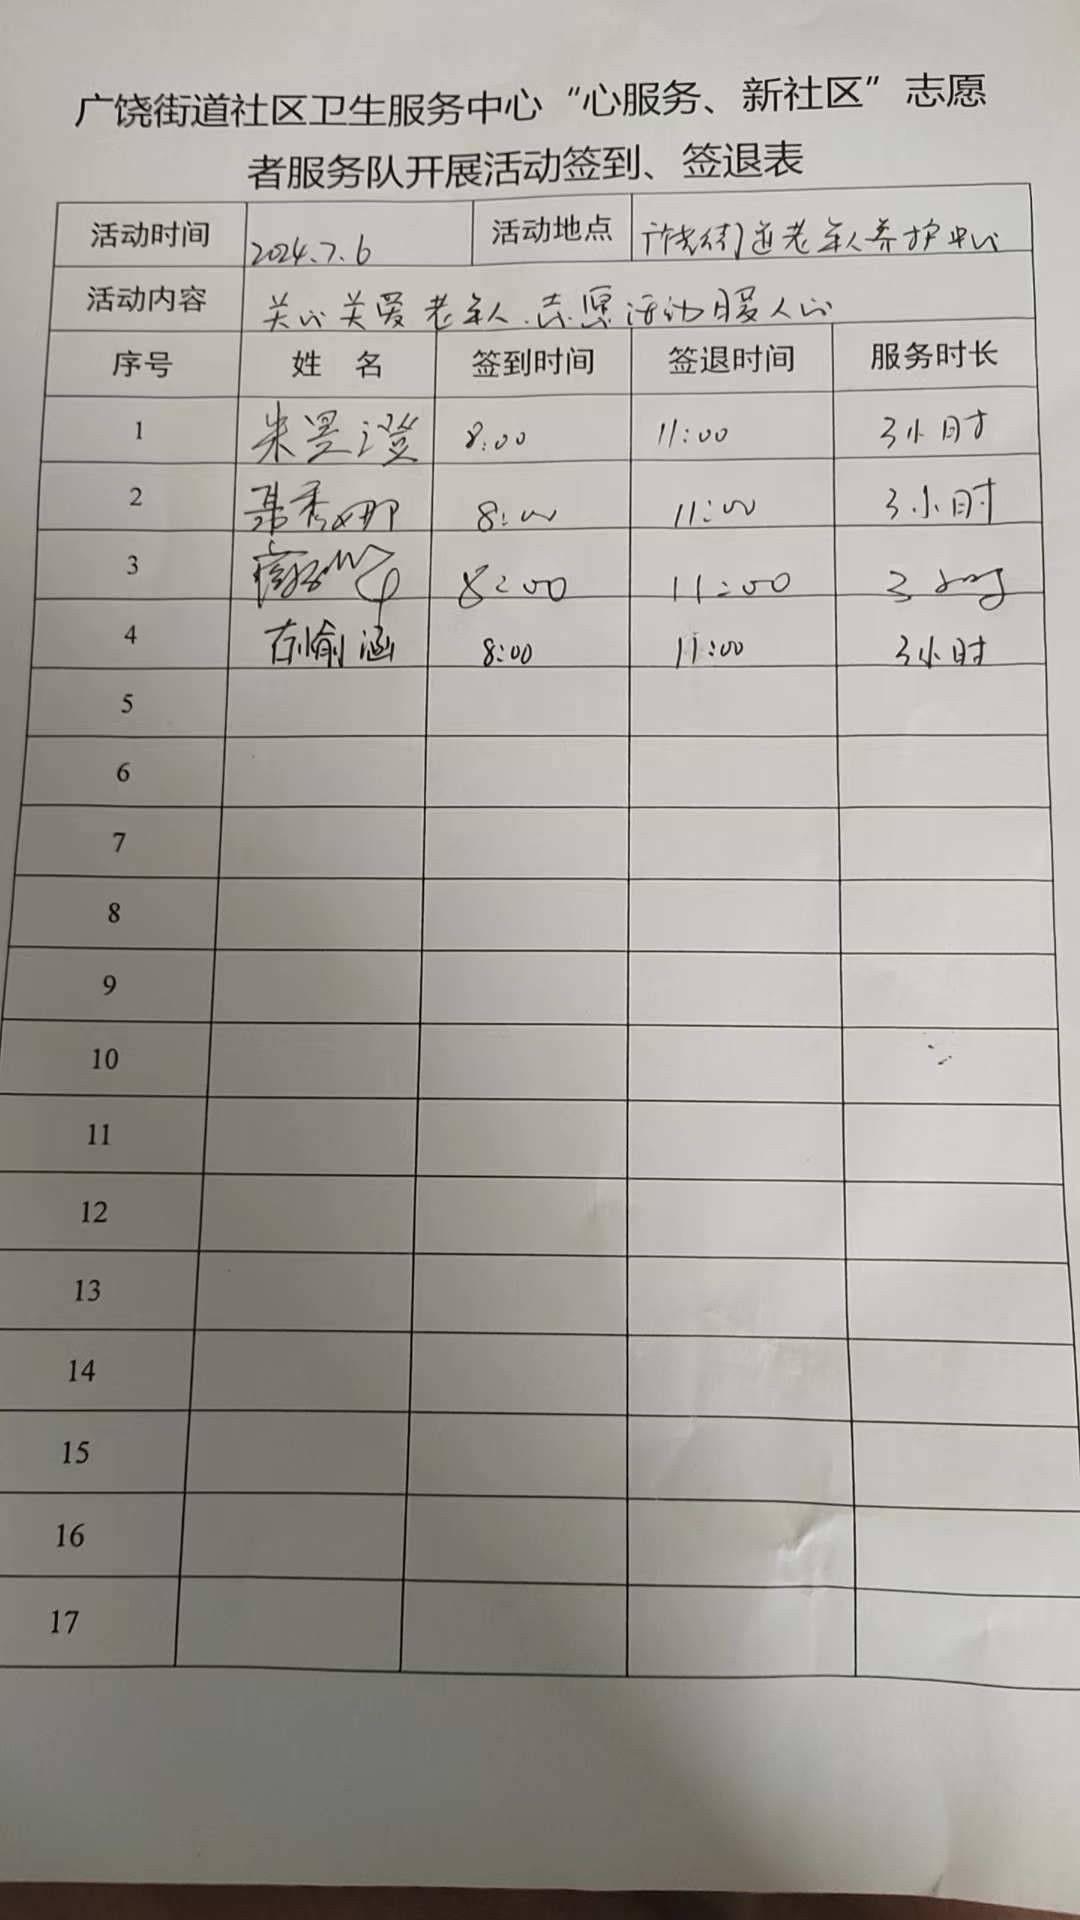 广饶街道社区卫生服务中心“心服务、新社区”志愿
者服务队开展活动签到、签退表
活动时间 2024.7.6 活动地点 广饶街道老年人养护中心
活动内容 关心关爱老年人.志愿活动暖人心
序号 姓 名 签到时间 签退时间 服务时长
1 朱昱澄 8:00 11:00 3小时
2 聂秀娜 8:00 11:00 3小时
3 8:00 11:00 3小时
4 愉涵 8:00 11:00 3小时
5
6
7
8
9
10
11
12
13
14
15
16
17